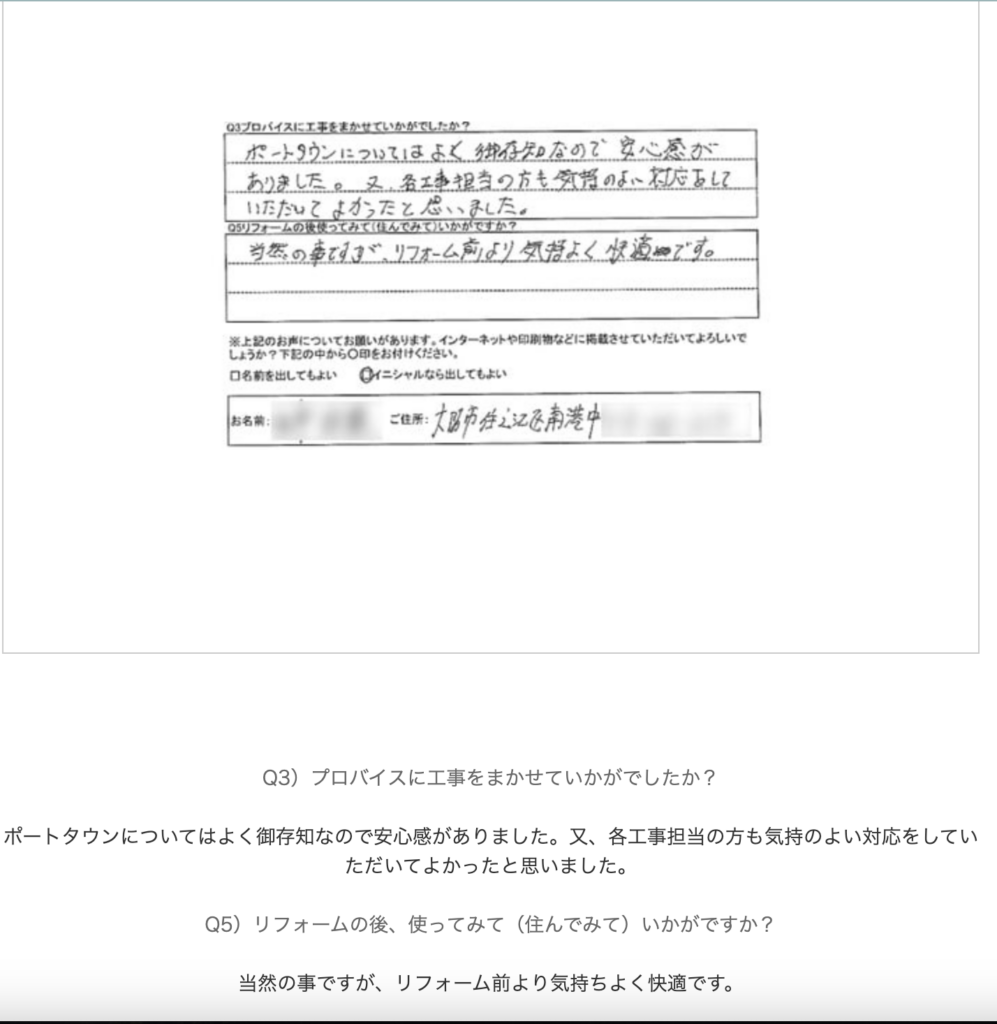 Q3プロバイスに工事をまかせていかがでしたか?
ポートタウンについてはよく御存知なので安心感が
ありました。又、各工事担当の方も気持のよい対応をして
いただいてよかったと思いました。
Q5リフォームの後使ってみて(住んでみて)いかがですか?
当然の事ですが、リフォーム前より気持よく快適です。
※上記のお声についてお願いがあります。インターネットや印刷物などに掲載させていただいてよろしいで
しょうか?下記の中から〇印をお付けください。
□名前を出してもよい □イニシャルなら出してもよい
お名前: ご住所: 大阪市住之江区南港中
Q3）プロバイスに工事をまかせていかがでしたか？
ポートタウンについてはよく御存知なので安心感がありました。又、各工事担当の方も気持のよい対応をしてい
ただいてよかったと思いました。
Q5）リフォームの後、使ってみて（住んでみて）いかがですか？
当然の事ですが、リフォーム前より気持ちよく快適です。